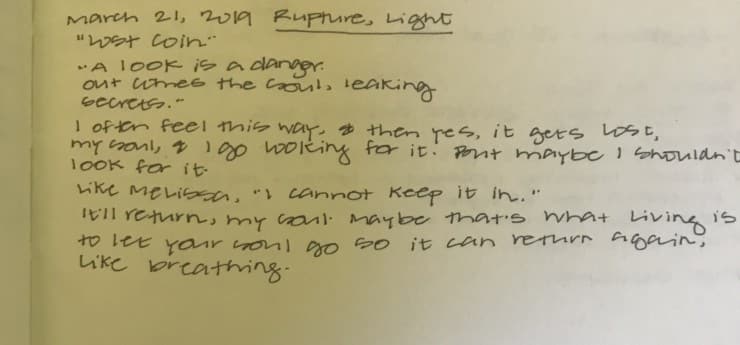 March 21, 2019 Rupture, Light
"Lost Coin"
"A look is a danger.
out comes the soul, leaking
secrets."
I often feel this way, & then yes, it gets lost,
my soul, & I go looking for it. But maybe I shouldn't
look for it.
Like Melissa, "I cannot keep it in."
It'll return, my soul. Maybe that's what living is
to let your soul go so it can return again,
Like breathing.